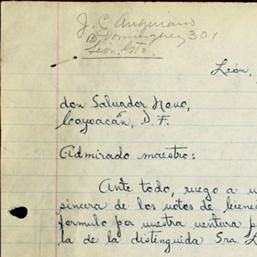 J. C. Anguiano
B. Dominguez 301
León, Gto.
León,
don Salvador Novo,
Coyoacán, D. F.
Admirado maestro:
Ante todo, ruego a u
sincera de los votos de biene
formulo por vuestra ventura p
la de la distinguida Sra. L